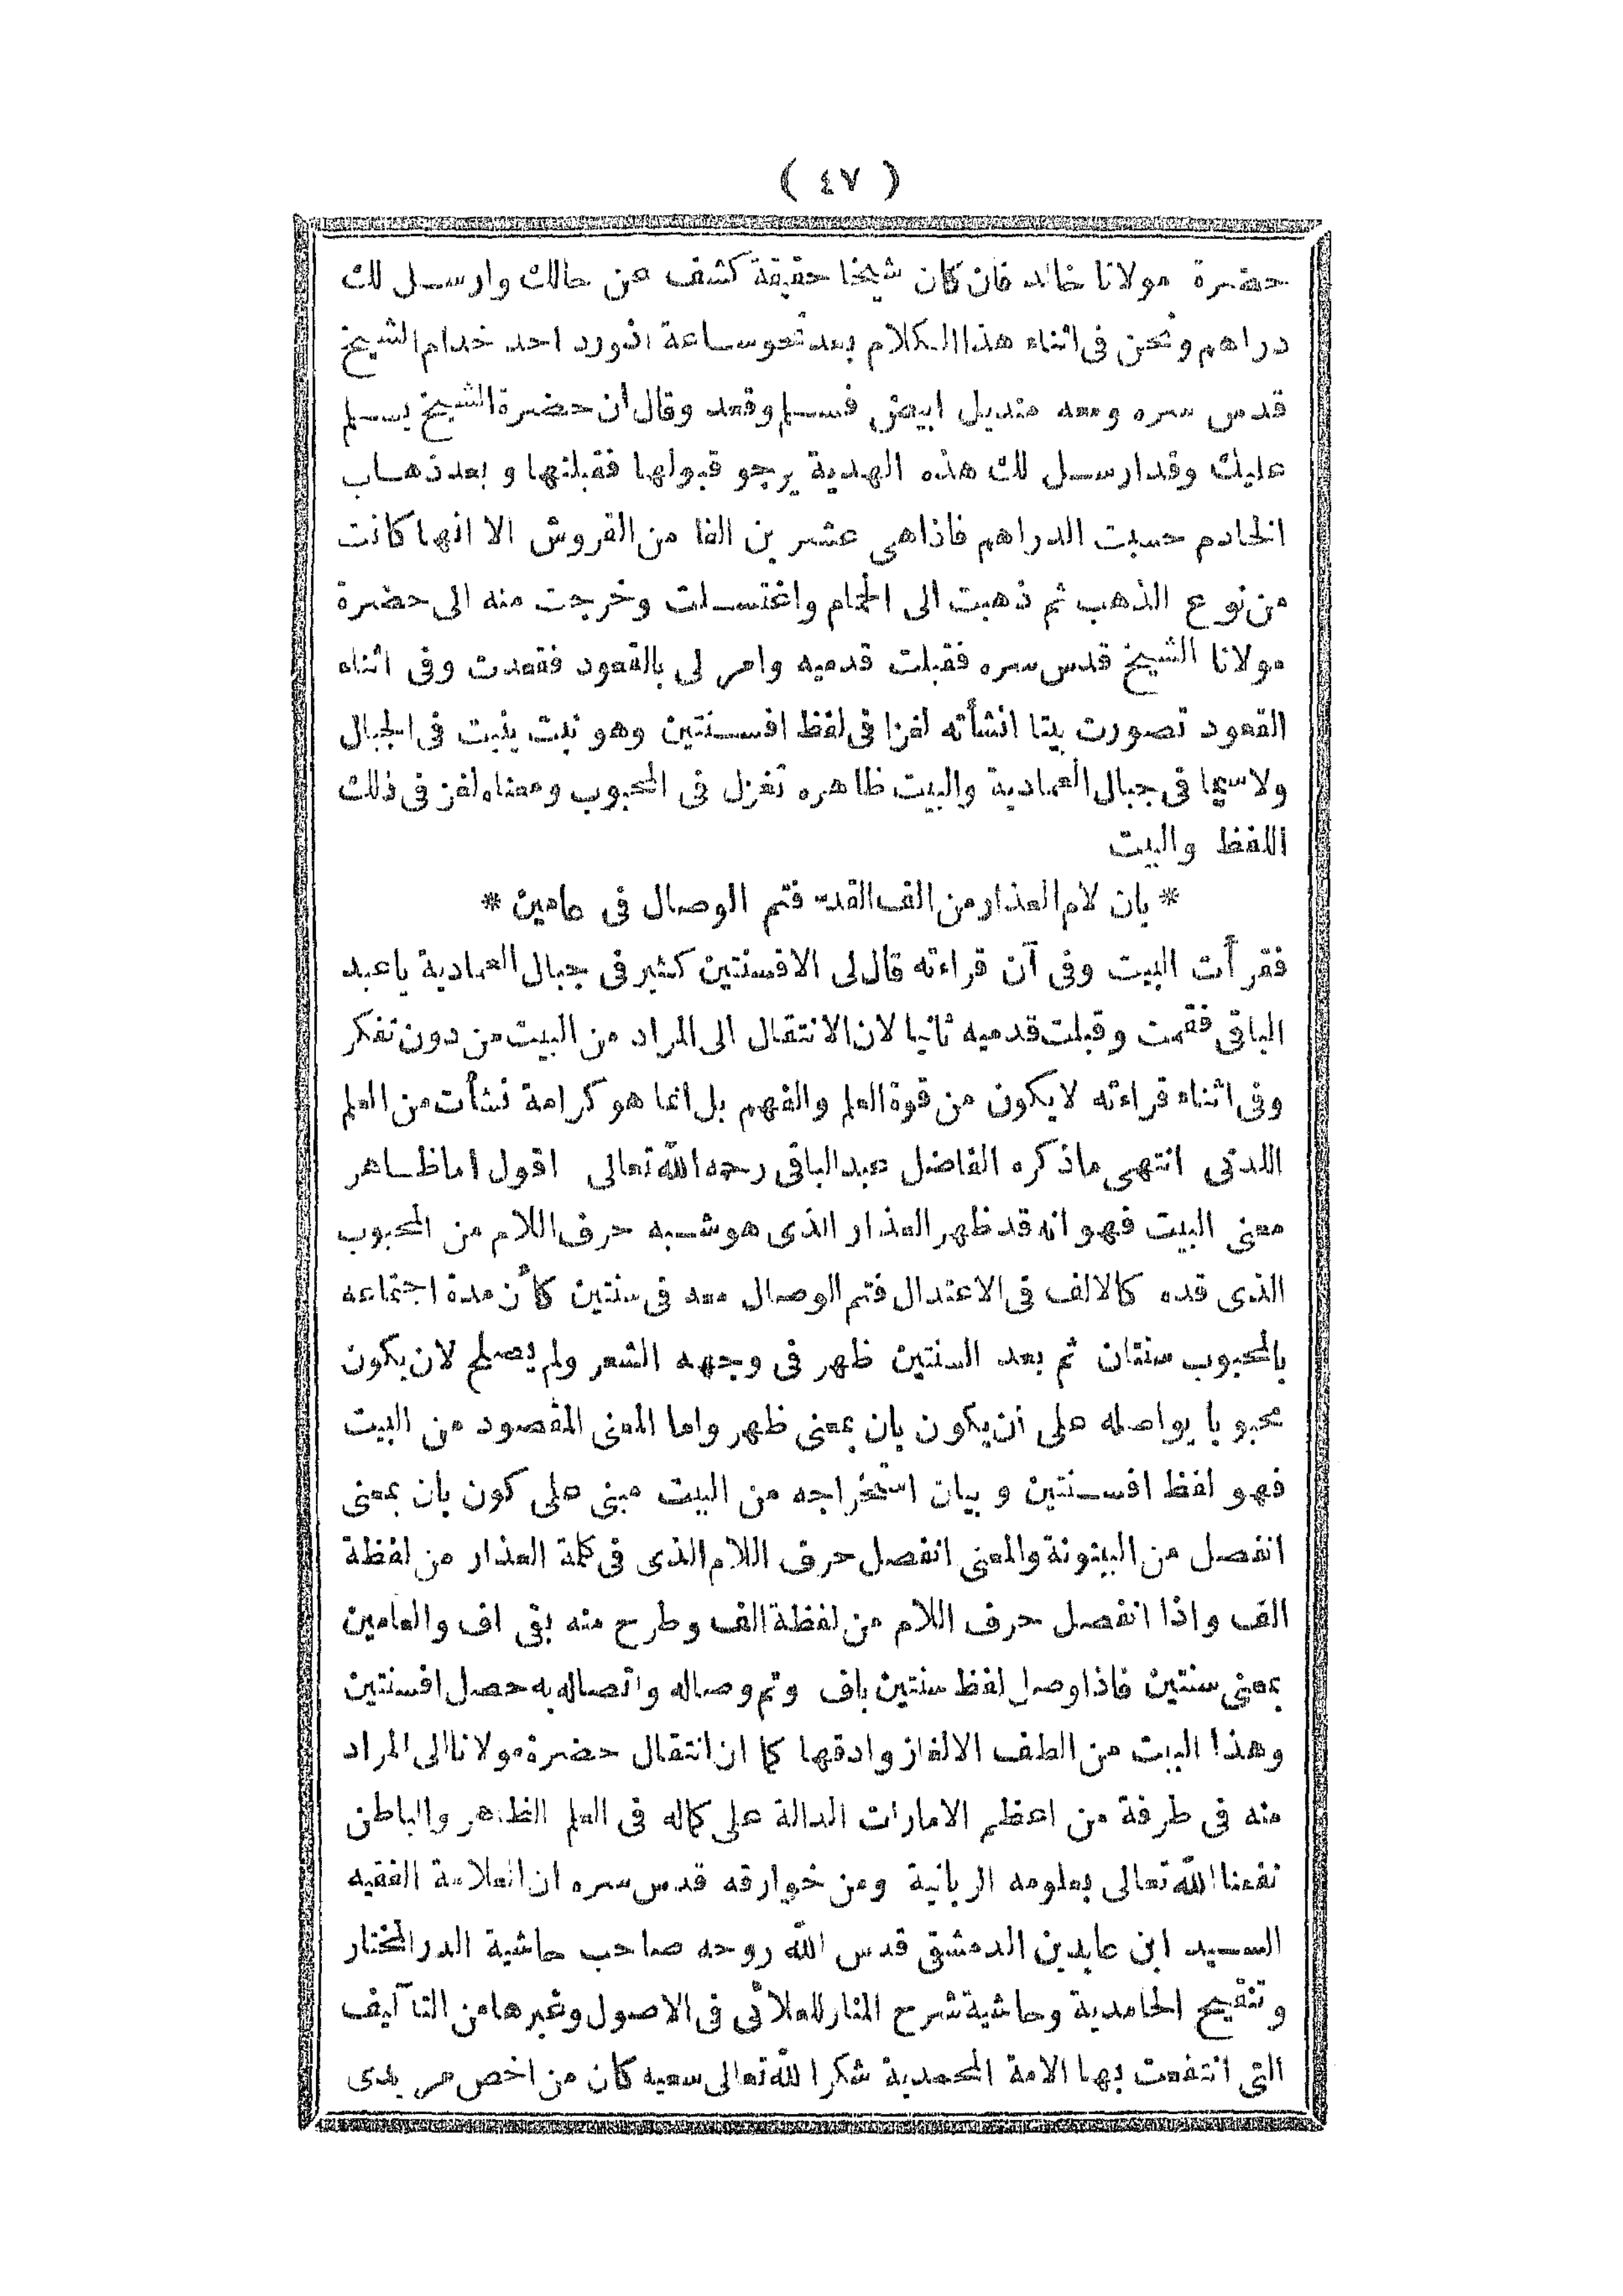 ( ٤٧ )
حضرة مولانا خالد فان كان شيخا حقيقة كشف عن حالك وارسل لك
دراهم ونحن فى اثناء هذا الكلام بعد نحو ساعة اذ ورد احد خدام الشيخ
قدس سره ومعه منديل ابيض فسلم وقعد وقال ان حضرة الشيخ يسلم
عليك وقد ارسل لك هذه الهدية يرجو قبولها فقبلتها وبعد ذهاب
الخادم حسبت الدراهم فاذا هى عشرين الفا من القروش الا انها كانت
من نوع الذهب ثم ذهبت الى الحمام واغتسلت وخرجت منه الى حضرة
مولانا الشيخ قدس سره فقبلت قدميه وامر لى بالقعود فقعدت وفى اثناء
القعود تصورت بيتا انشأته لغزا فى لفظ افسنتين وهو نبت ينبت فى الجبال
ولاسيما فى جبال العمادية والبيت ظاهره تغزل فى المحبوب ومعناه لغز فى ذلك
اللفظ والبيت
* بان لام العذار من الف القد فتم الوصال فى عامين *
فقرأت البيت وفى آن قراءته قال لى الافسنتين كثير فى جبال العمادية ياعبد
الباقى فقمت وقبلت قدميه ثانيا لان الانتقال الى المراد من البيت من دون تفكر
وفى اثناء قراءته لا يكون من قوة العلم والفهم بل انما هو كرامة نشأت من العلم
اللدنى انتهى ماذكره الفاضل عبد الباقى رحمه الله تعالى اقول اما ظاهر
معنى البيت فهو انه قد ظهر العذار الذى هو شبه حرف اللام من المحبوب
الذى قده كالالف فى الاعتدال فتم الوصال معه فى سنتين كأن مدة اجتماعه
بالمحبوب سنتان ثم بعد السنتين ظهر فى وجهه الشعر ولم يصلح لان يكون
محبوبا يواصله على ان يكون بان بمعنى ظهر واما المعنى المقصود من البيت
فهو لفظ افسنتين وبيان استخراجه من البيت مبنى على كون بان بمعنى
انفصل من البينونة والمعنى انفصل حرف اللام الذى فى كلمة العذار من لفظة
الف واذا انفصل حرف اللام من لفظة الف وطرح منه بقى اف والعامين
بمعنى سنتين فاذا وصل لفظ سنتين باف وتم وصاله واتصاله به حصل افسنتين
وهذا البيت من الطف الالغاز وادقها كما ان انتقال حضرة مولانا الى المراد
منه فى طرفة من اعظم الامارات الدالة على كماله فى العلم الظاهر والباطن
نفعنا الله تعالى بعلومه الربانية ومن خوارقه قدس سره ان العلامة الفقيه
السيد ابن عابدين الدمشقى قدس الله روحه صاحب حاشية الدر المختار
وتنقيح الحامدية وحاشية شرح المنار للعلائى فى الاصول وغيرها من التآليف
التى انتفعت بها الامة المحمدية شكر الله تعالى سعيه كان من اخص مريدى